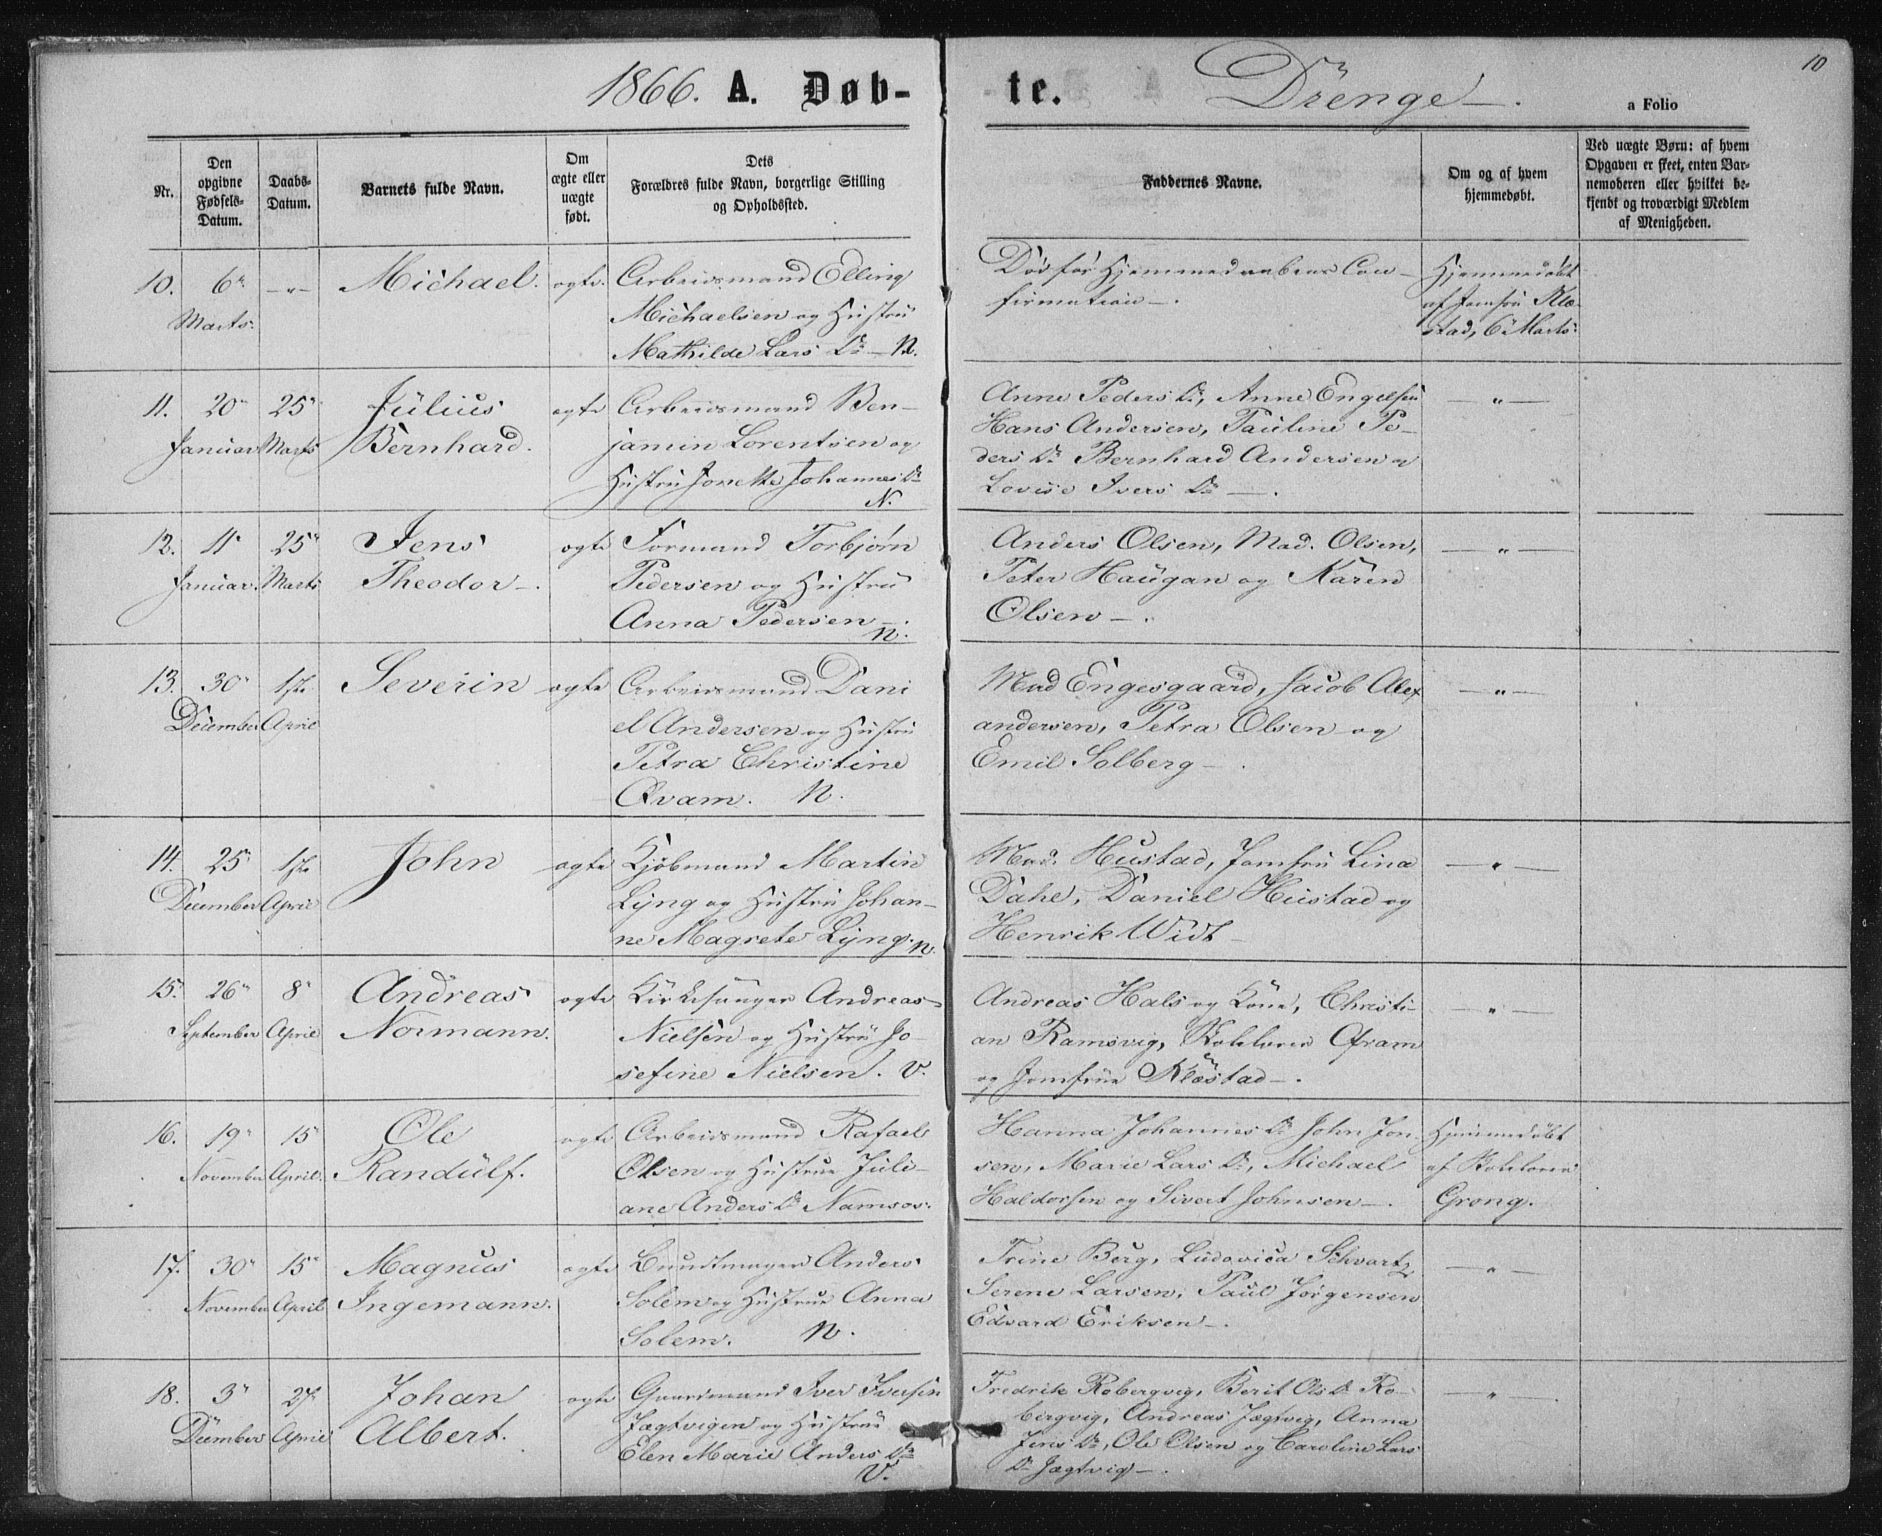 1866. A. Døb-
te. Drenge. a Folio
10
Nr.
Den opgivne Fødsels-Datum.
Daabs-Datum.
Barnets fulde Navn.
Om ægte eller uægte født.
Dets Forældres fulde Navn, borgerlige Stilling og Opholdssted.
Faddernes Navne.
Om og af hvem hjemmedøbt.
Ved uægte Børn: af hvem Opgaven er skeet, enten Barnemoderen eller hvilket bekjendt og troværdigt Medlem af Menigheden.
10. 6te Marts. -"- Michael. ægte.
Arbeidsmand Elling
Michaelsen og Hustru
Mathilde Lars Dr - N.
Død før Hjemmedaabens Con-
firmation -.
Hjemmedøbt
af Jomfru Klæ-
stad, 6 Marts.
11. 20 Januar 25 Marts
Julius
Bernhard.
ægte
Arbeidsmand Ben-
jamin Lorentsen og
Hustru Jonette Johannes Dr
N.
Anne Peders Dr, Anne Engelsen
Hans Andersen, Pauline Pe-
ders Dr Bernhard Andersen og
Lovise Ivers Dr -.
-"-
12. 11 Januar. 25 Marts
Jens
Theodor -.
ægte
Formand Torbjørn
Pedersen og Hustru
Anna Pedersen -.
N.
Anders Olsen, Mad. Olsen,
Peter Haugan og Karen
Olsen -.
-"-
13. 30 December 1ste April
Severin
ægte
Arbeidsmand Dani
el Andersen og Hustru
Petra Christine
Qvam. N.
Mad Engesgaard, Jacob Alex
andersen, Petra Olsen og
Emil Solberg -.
-"-
14. 25 December 1ste April
John
ægte
Kjøbmand Martin
Lyng og Hustru Johan-
ne Magrete Lyng. N.
Mad. Hustad, Jomfru Lina
Dahl, Daniel Hustad og
Henrik Widt -
-"-
15. 26 September 8 April
Andreas
Normann.
ægte
Kirkesanger Andreas
Nielsen og Hustru Jo-
sefine Nielsen. V.
Andreas Hals og Kone, Christi-
an Ramsvig, Kokkorer Qvam
og Jomfrue Klæstad -.
-"-
16. 19 November 15 April.
Ole
Randulf.
ægte
Arbeidsmand Rafael
Olsen og Hustrue Juli-
ane Anders Dr Namsos.
Hanna Johannes Dr John Jon
sen, Marie Lars Dr, Michael
Haldorsen og Sivert Johnsen -.
Hjemmedøbt
af
Grong.
17. 30 November 15 April
Magnus
Ingemann.
ægte
Bundtmager Anders
Solem og Hustrue Anna
Solem. N.
Trine Berg, Ludovica Schvartz
Serene Larsen, Paul Jørgensen
Edvard Eriksen -.
-"-
18. 3 December 27 April
Johan
Albert.
ægte
Gaardmand Iver Iversen
Jægtvigen og Hustrue
Elen Marie Anders Dr
V.
Fredrik Robergvig, Berit Ols Dr Ro-
bergvig, Andreas Jægtvig, Anna
Jens Dr, Ole Olsen og Caroline Lars
Dr Jægtvig -.
-"-